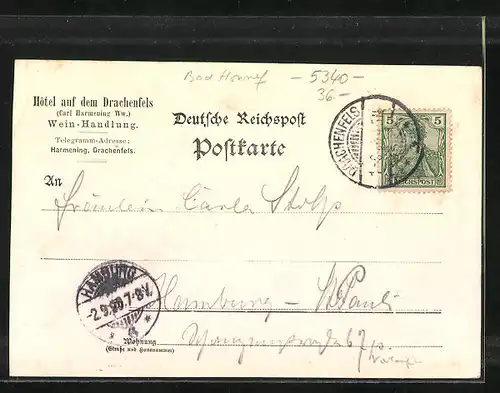 Bad Honnef - 5340 -
36.-
Hôtel auf dem Drachenfels
(Carl Harmening Ww.)
Wein-Handlung.
Telegramm-Adresse:
Harmening, Drachenfels.
Deutsche Reichspost
Postkarte
DRACHENFELS
5 5
REICHSPOST
An
Fräulein Carla Stolp
HAMBURG
-2.9.00.7-8V.
Hamburg - St. Pauli
67 p.
Wohnung
(Straße und Hausnummer)